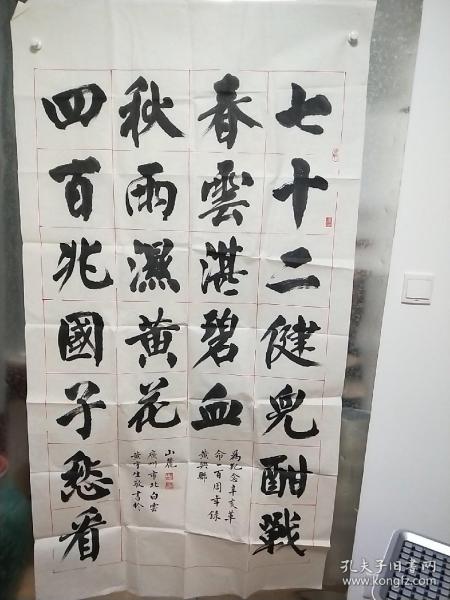 七十二健兒酣戰
春雲湛碧血
秋雨濕黃花
四百兆國子愁看
為紀念辛亥革
命一百周年錄
黃興聯
敬書於
廣州市北白雲
山麓
孔夫子旧书网
www.kongfz.com